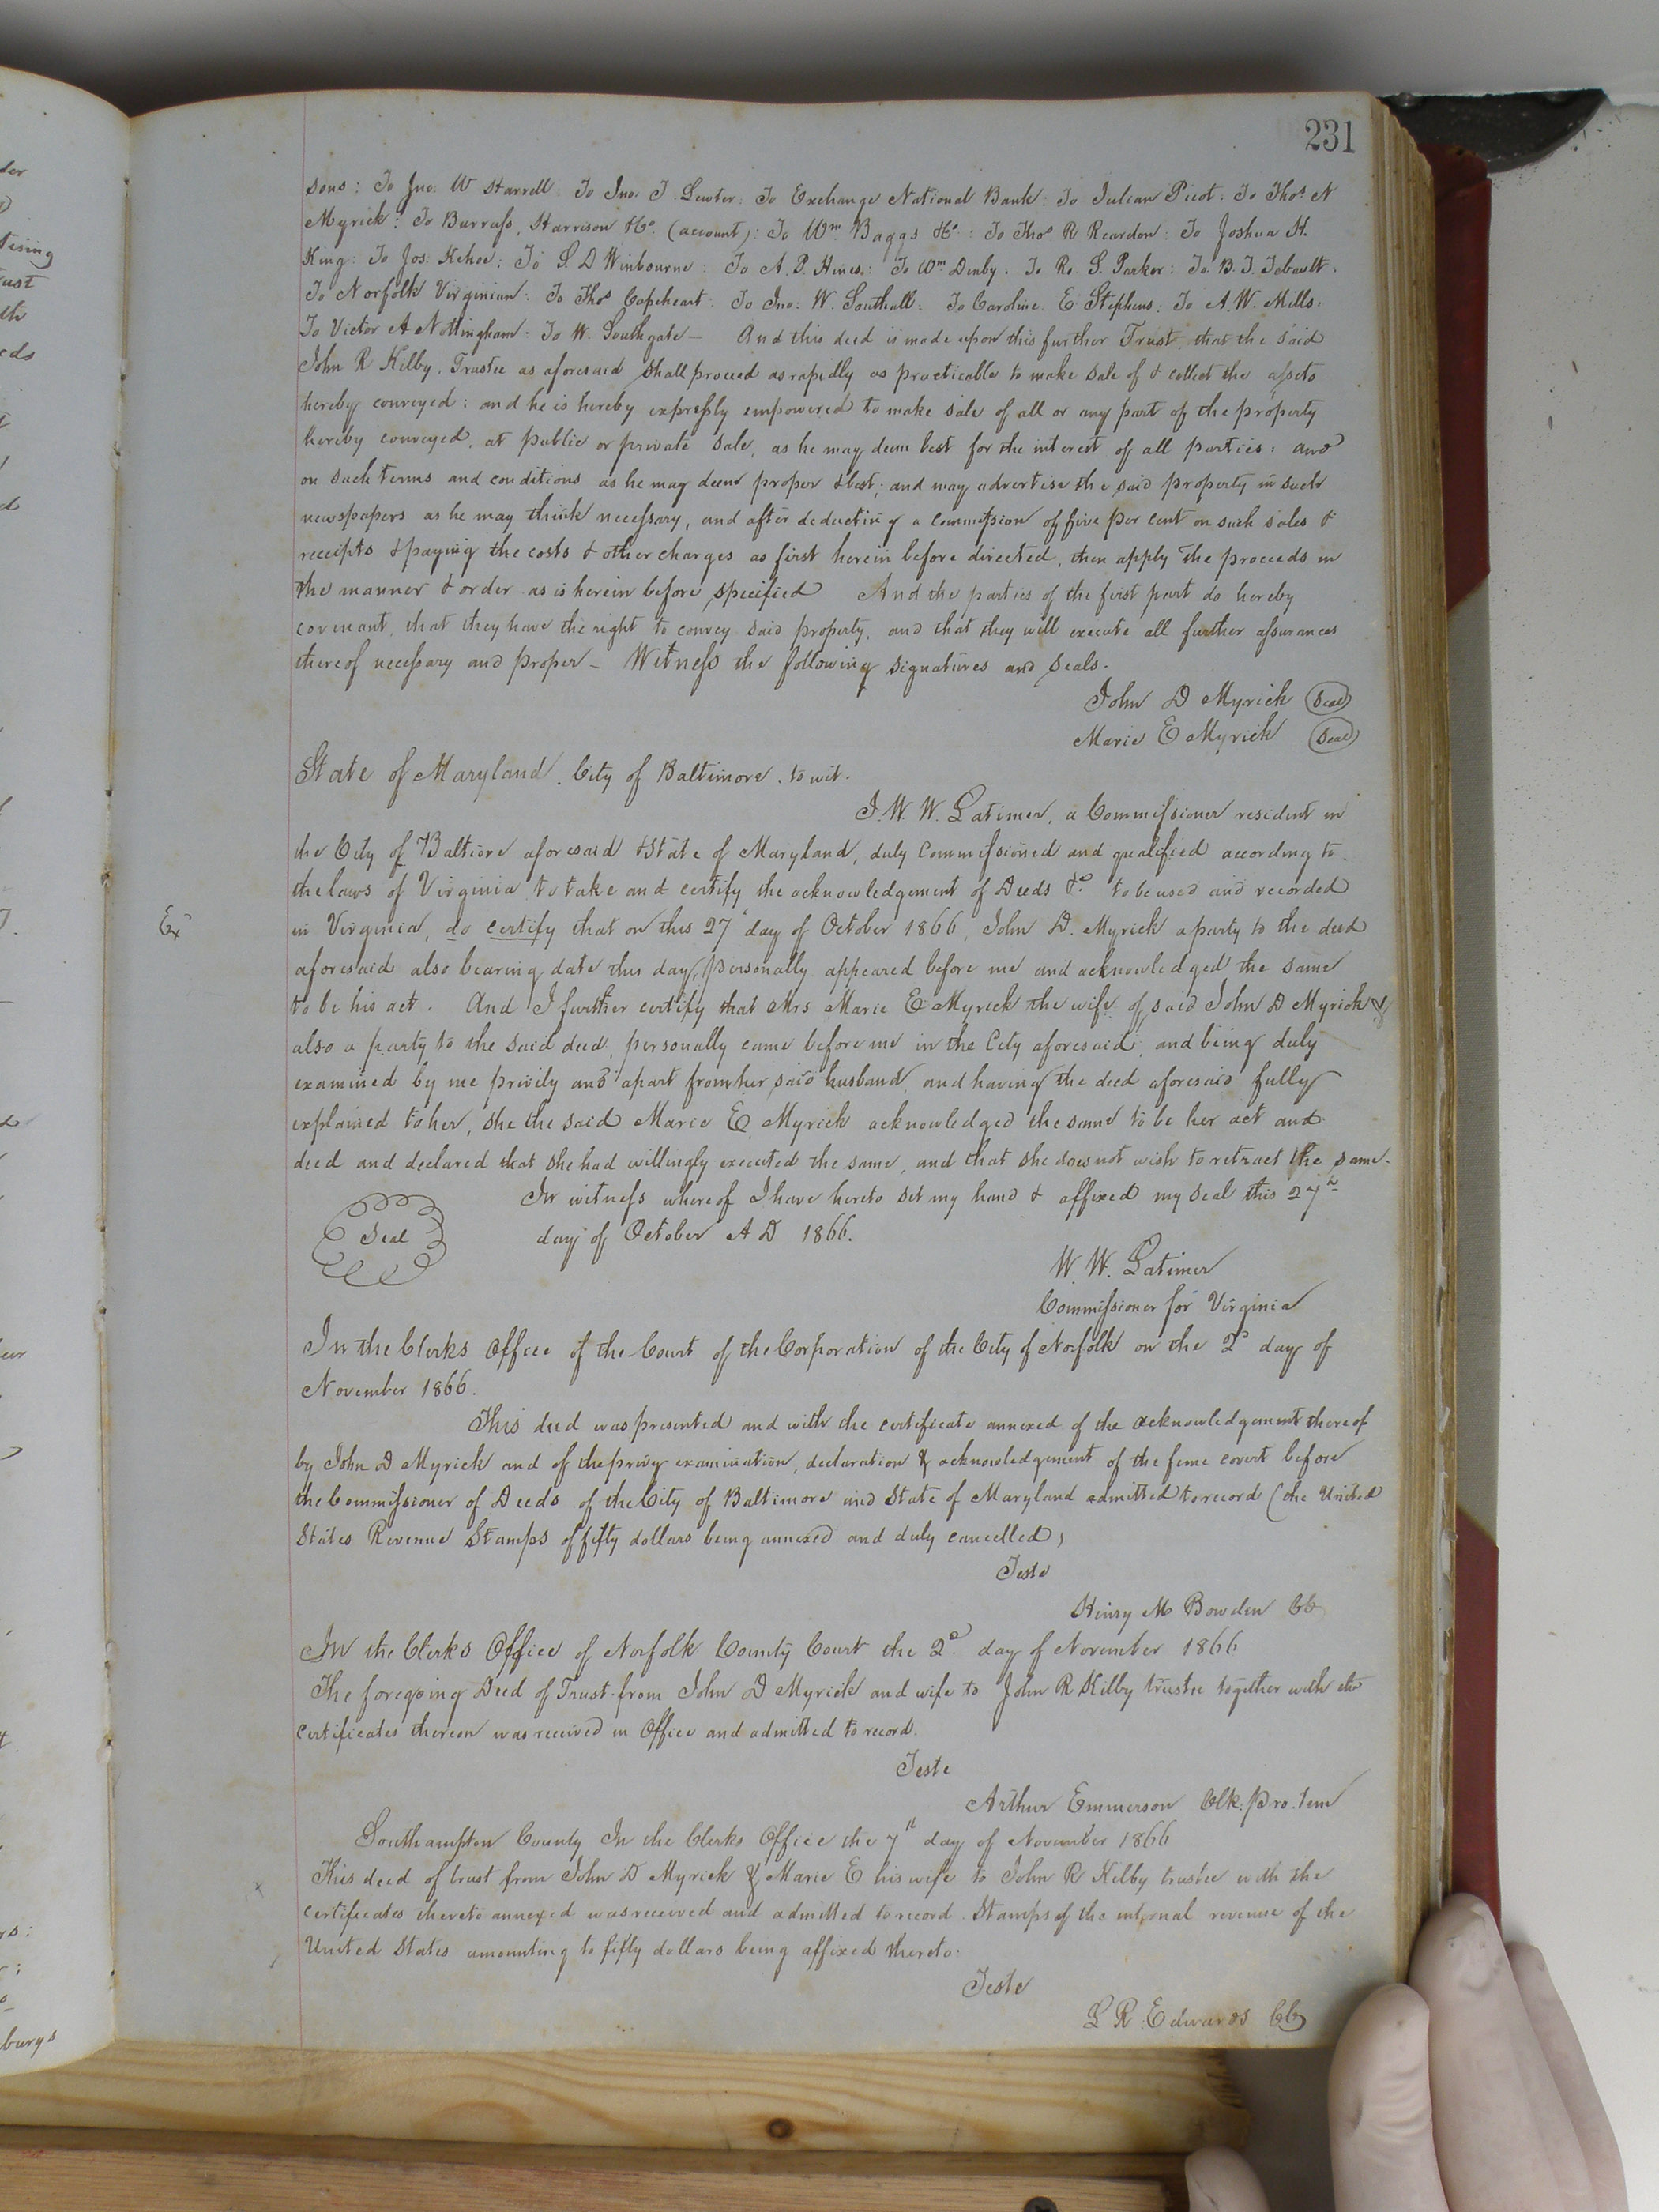 231
sons: To Jno. W Harrell: To Jno. J. Lawter: To Exchange National Bank: To Julian Picot: To Thos. N
Myrick: To Burruss, Harrison & Co. (account): To Wm. Baggs & Co: To Thos R Reardon: To Joshua H.
King: To Jos: Kehoe: To S. D Winbourne: To A. P. Hines: To Wm Denby: To Ro. S. Parker: To B. T. Tebault:
To Norfolk Virginian: To Thos Capeheart: To Jno: W. Southall: To Caroline E Stephens: To A. W. Mills:
To Victor A Nottingham: To W. Southgate — And this deed is made upon this further Trust, that the said
John R Kilby, Trustee as aforesaid shall proceed as rapidly as practicable to make sale of & collect the assets
hereby conveyed: and he is hereby expressly empowered to make sale of all or any part of the property
hereby conveyed, at public or private sale, as he may deem best for the interest of all parties: and
on such terms and conditions as he may deem proper & best; and may advertise the said property in such
newspapers as he may think necessary, and after deducting a commission of five per cent on such sales &
receipts & paying the costs & other charges as first herein before directed, then apply the proceeds in
the manner & order as is herein before specified And the parties of the first part do hereby
covenant, that they have the right to convey said property, and that they will execute all further assurances
thereof necessary and proper — Witness the following signatures and seals.
John D Myrick (Seal)
Marie E Myrick (Seal)
State of Maryland. City of Baltimore, to wit.
I. W. W. Latimer, a Commissioner resident in
the City of Baltiore aforesaid & State of Maryland, duly commissioned and qualified according to
the laws of Virginia to take and certify the acknowledgement of Deeds &c. to be used and recorded
Ex
in Virginia, do certify that on this 27 day of October 1866, John D. Myrick a party to the deed
aforesaid also bearing date this day, personally appeared before me and acknowledged the same
to be his act. And I further certify that Mrs Marie E Myrick the wife of said John D Myrick &
also a party to the said deed, personally came before me in the City aforesaid, and being duly
examined by me privily and apart from her said husband, and having the deed aforesaid fully
explained to her, she the said Marie E. Myrick acknowledged the same to be her act and
deed and declared that she had willingly executed the same, and that she does not wish to retract the same.
In witness whereof I have hereto set my hand & affixed my seal this 27th
Seal
day of October A D 1866.
W. W. Latimer
Commissioner for Virginia
In the Clerks Office of the Court of the Corporation of the City of Norfolk on the 2d day of
November 1866.
This deed was presented and with the certificate annexed of the acknowledgement thereof
by John D Myrick and of the privy examination, declaration & acknowledgement of the feme covert before
the Commissioner of Deeds of the City of Baltimore and State of Maryland admitted to record (the United
States Revenue Stamps of fifty dollars being annexed and duly cancelled)
Teste
Henry M Bowden CC
In the Clerks Office of Norfolk County Court the 2d day of November 1866
The foregoing Deed of Trust from John D Myrick and wife to John R Kilby trustee together with the
certificates thereon was received in Office and admitted to record.
Teste
Arthur Emmerson Clk: pro. tem
Southampton County In the Clerks Office the 7th day of November 1866
This deed of trust from John D Myrick & Marie E his wife to John R Kilby trustee with the
certificates thereto annexed was received and admitted to record. Stamps of the internal revenue of the
United States amounting to fifty dollars being affixed thereto.
Teste
L R Edwards CC